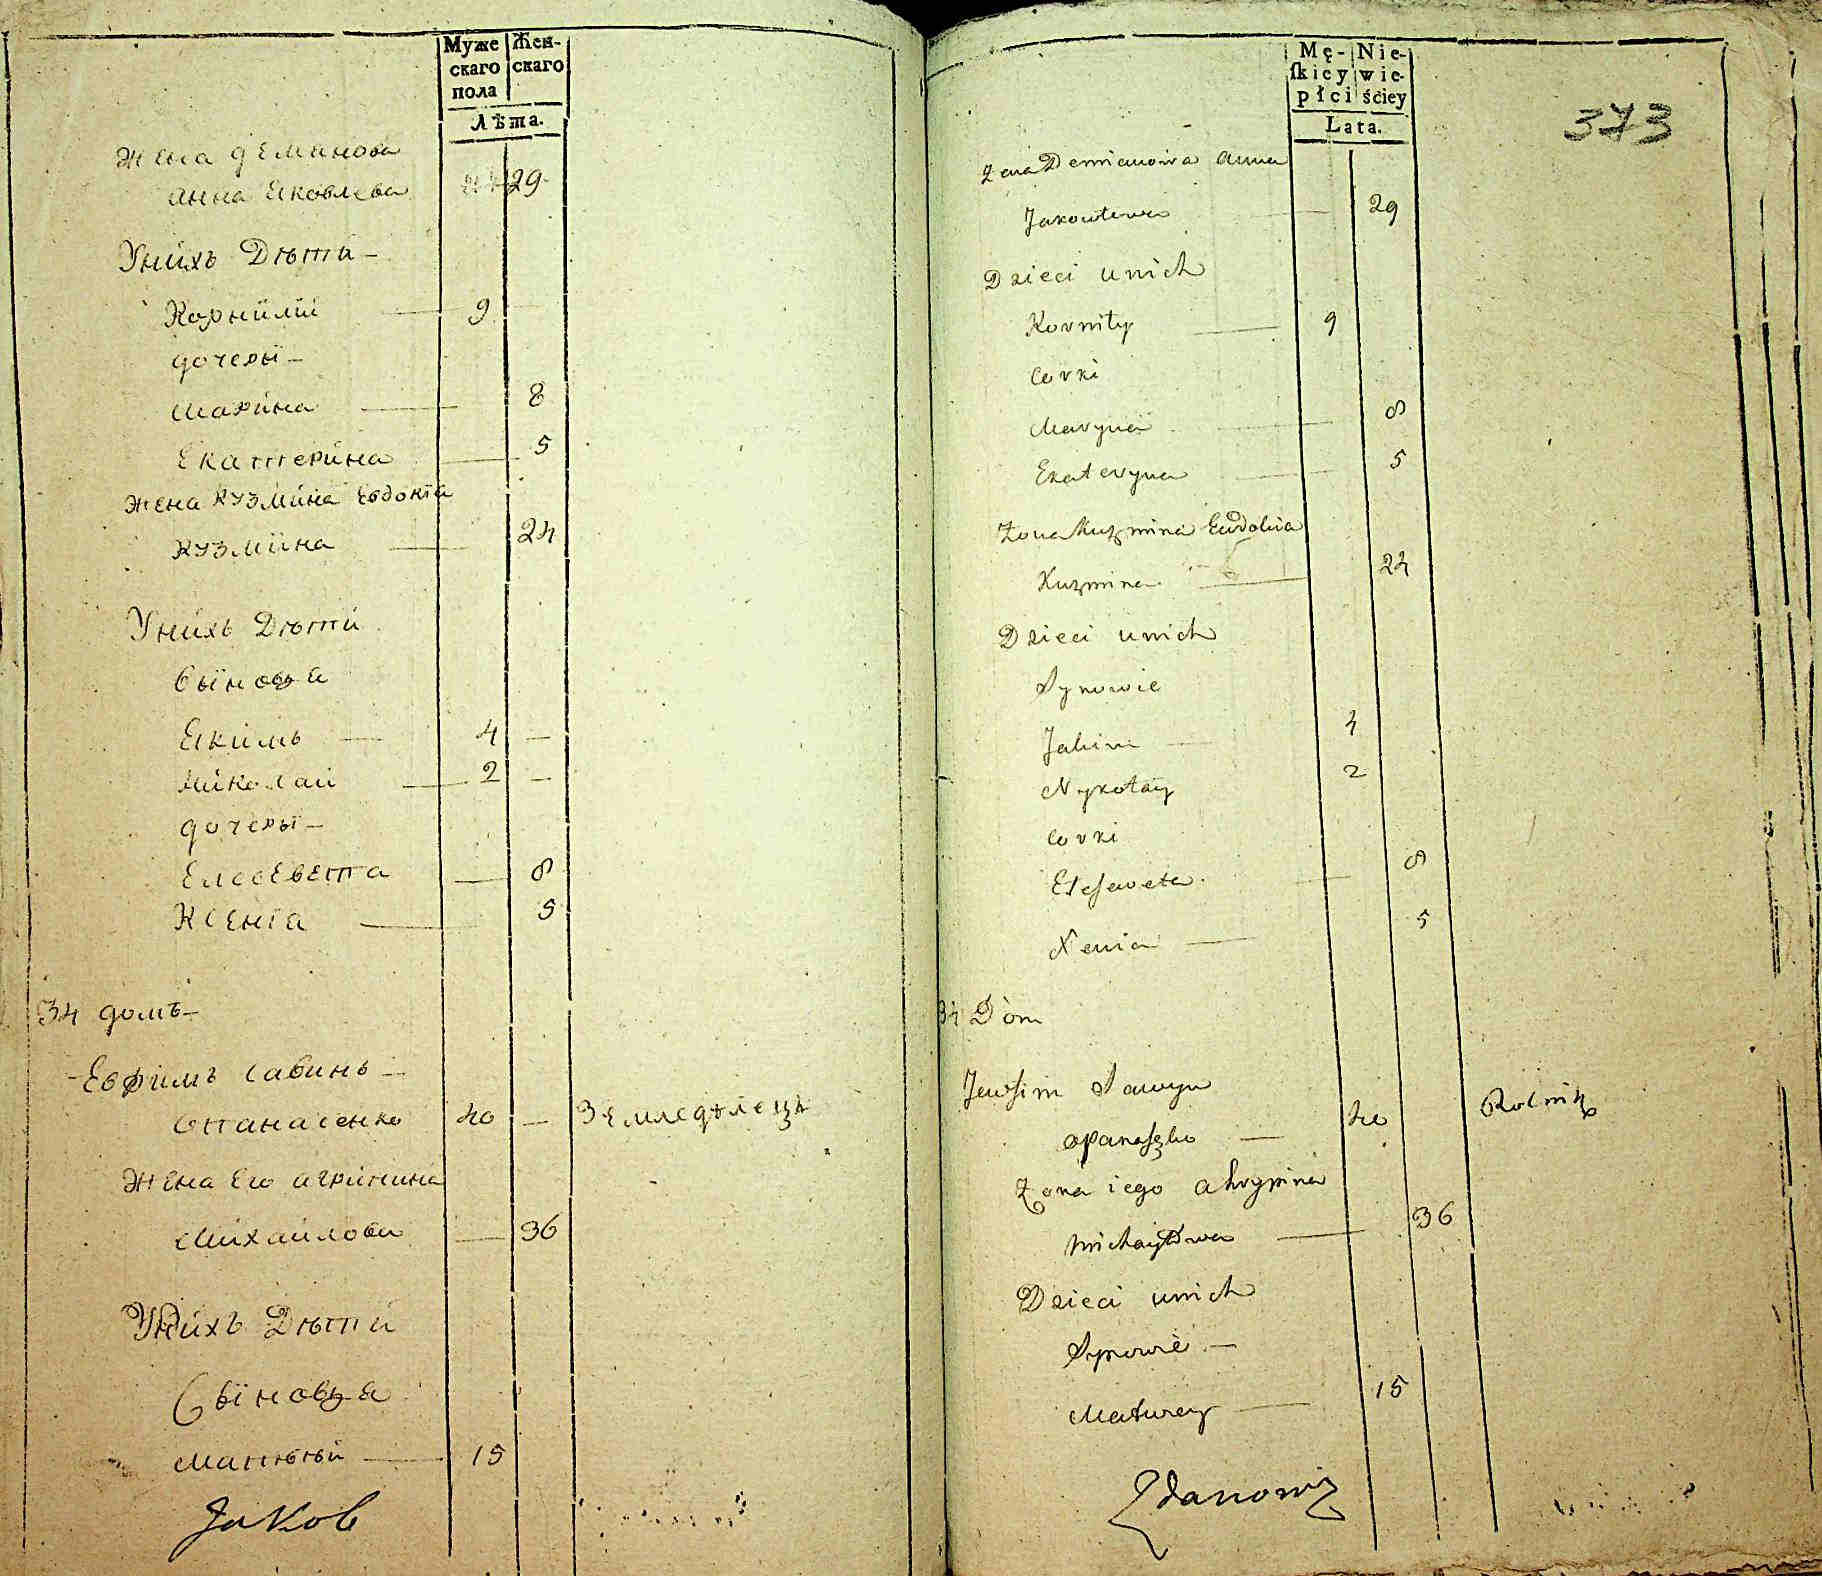 Муже
скаго
пола
Жен-
скаго
Лѣта.
Жена деминова
анна Яковлева 29
Унихъ Дѣти
Корнилий 9
дочеры
Марина 8
Екатерина 5
Жена Кузмина Евдокіа
Кузмина 24
Унихъ Дѣти
Сыновья
Екимъ 4 —
Николай 2 —
дочеры
Елесевета 8
Ксеніа 5
34 домъ
Евфимъ Савинъ
Опанасенко 40 — Земледѣлецъ
Жена Его агрипина
Михайлова 36
Унихъ Дѣти
Сыновья
Матвѣй 15
Jakob
Mę-
skiey
płci
Nie-
wie-
ściey
Lata.
373
Żona Demianowa anna
Jakowlewa 29
Dzieci unich
Kornity 9
Corki
Maryna 8
Ekateryna 5
Żona Kuzmina Eudokia
Kuzmina 24
Dzieci unich
Synowie
Jakim 4
Nykołay 2
Corki
Elesaweta 8
Xenia 5
34 Dom
Jewfim Sawyn
opanasęko 40 Rolnik
Żona iego ahrypina
Michayłowa 36
Dzieci unich
Synowie
Matwey 15
Zdanowicz